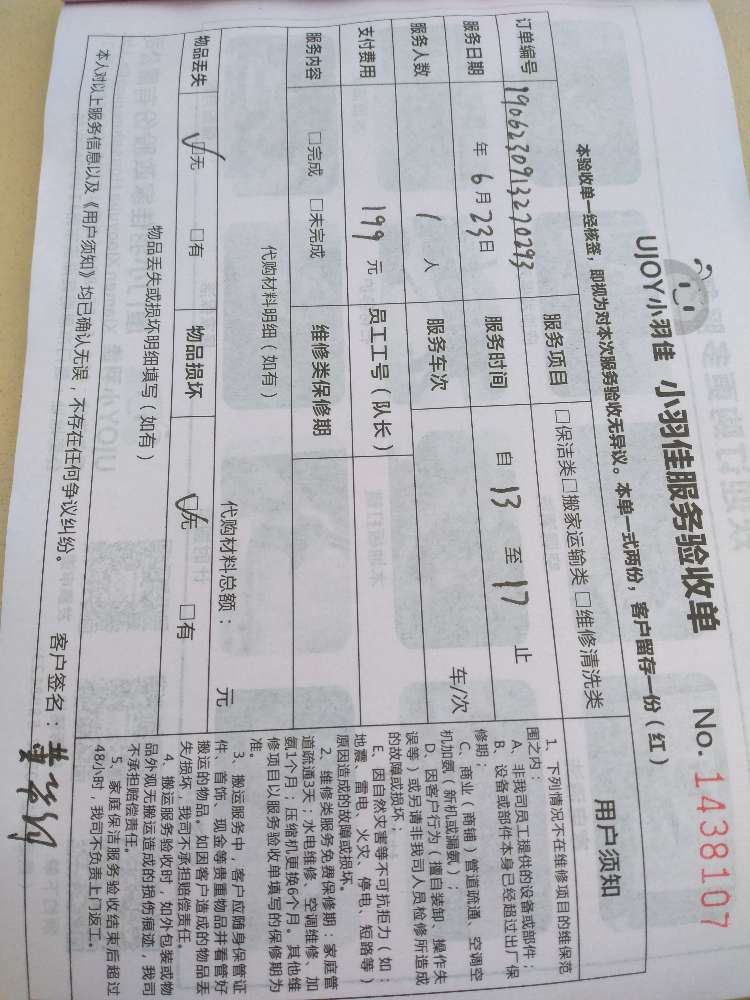 UJOY小羽佳 小羽佳服务验收单 No. 1438107
本验收单一经核签，即视为对本次服务验收无异议。本单一式两份，客户留存一份（红）
订单编号 19062309132270293 服务项目 □保洁类□搬家运输类□维修清洗类
服务日期 年 6 月 23 日 服务时间 自 13 至 17 止
服务人数 1 人 服务车次 车/次
支付费用 199 元 员工工号（队长）
服务内容 □完成 □未完成 维修类保修期
代购材料明细（如有） 代购材料总额： 元
物品丢失 ☑无 □有 物品损坏 ☑无 □有
物品丢失或损坏明细填写（如有）
本人对以上服务信息以及《用户须知》均已确认无误，不存在任何争议纠纷。 客户签名：
用户须知
1、下列情况不在维修项目的维保范
围之内：
A、非我司员工提供的设备或部件；
B、设备或部件本身已经超过出厂保
修期；
C、商业（商铺）管道疏通、空调空
机加氨（新机或漏氨）；
D、因客户行为（擅自装卸、操作失
误等）或另请非我司人员检修所造成
的故障或损坏；
E、因自然灾害等不可抗拒力（如：
地震、雷电、火灾、停电、短路等）
原因造成的故障或损坏。
2、维修类服务免费保修期：家庭管
道疏通3天；水电维修、空调维修、加
氨1个月；压缩机更换6个月。其他维
修项目以服务验收单填写的保修期为
准。
3、搬运服务中，客户应随身保管证
件、首饰、现金等贵重物品并看管好
搬运的物品。如因客户造成的物品丢
失/损坏，我司不承担赔偿责任。
4、搬运服务验收时，如外包装或物
品外观无搬运造成的损伤痕迹，我司
不承担赔偿责任。
5、家庭保洁服务验收结束后超过
48小时，我司不负责上门返工。